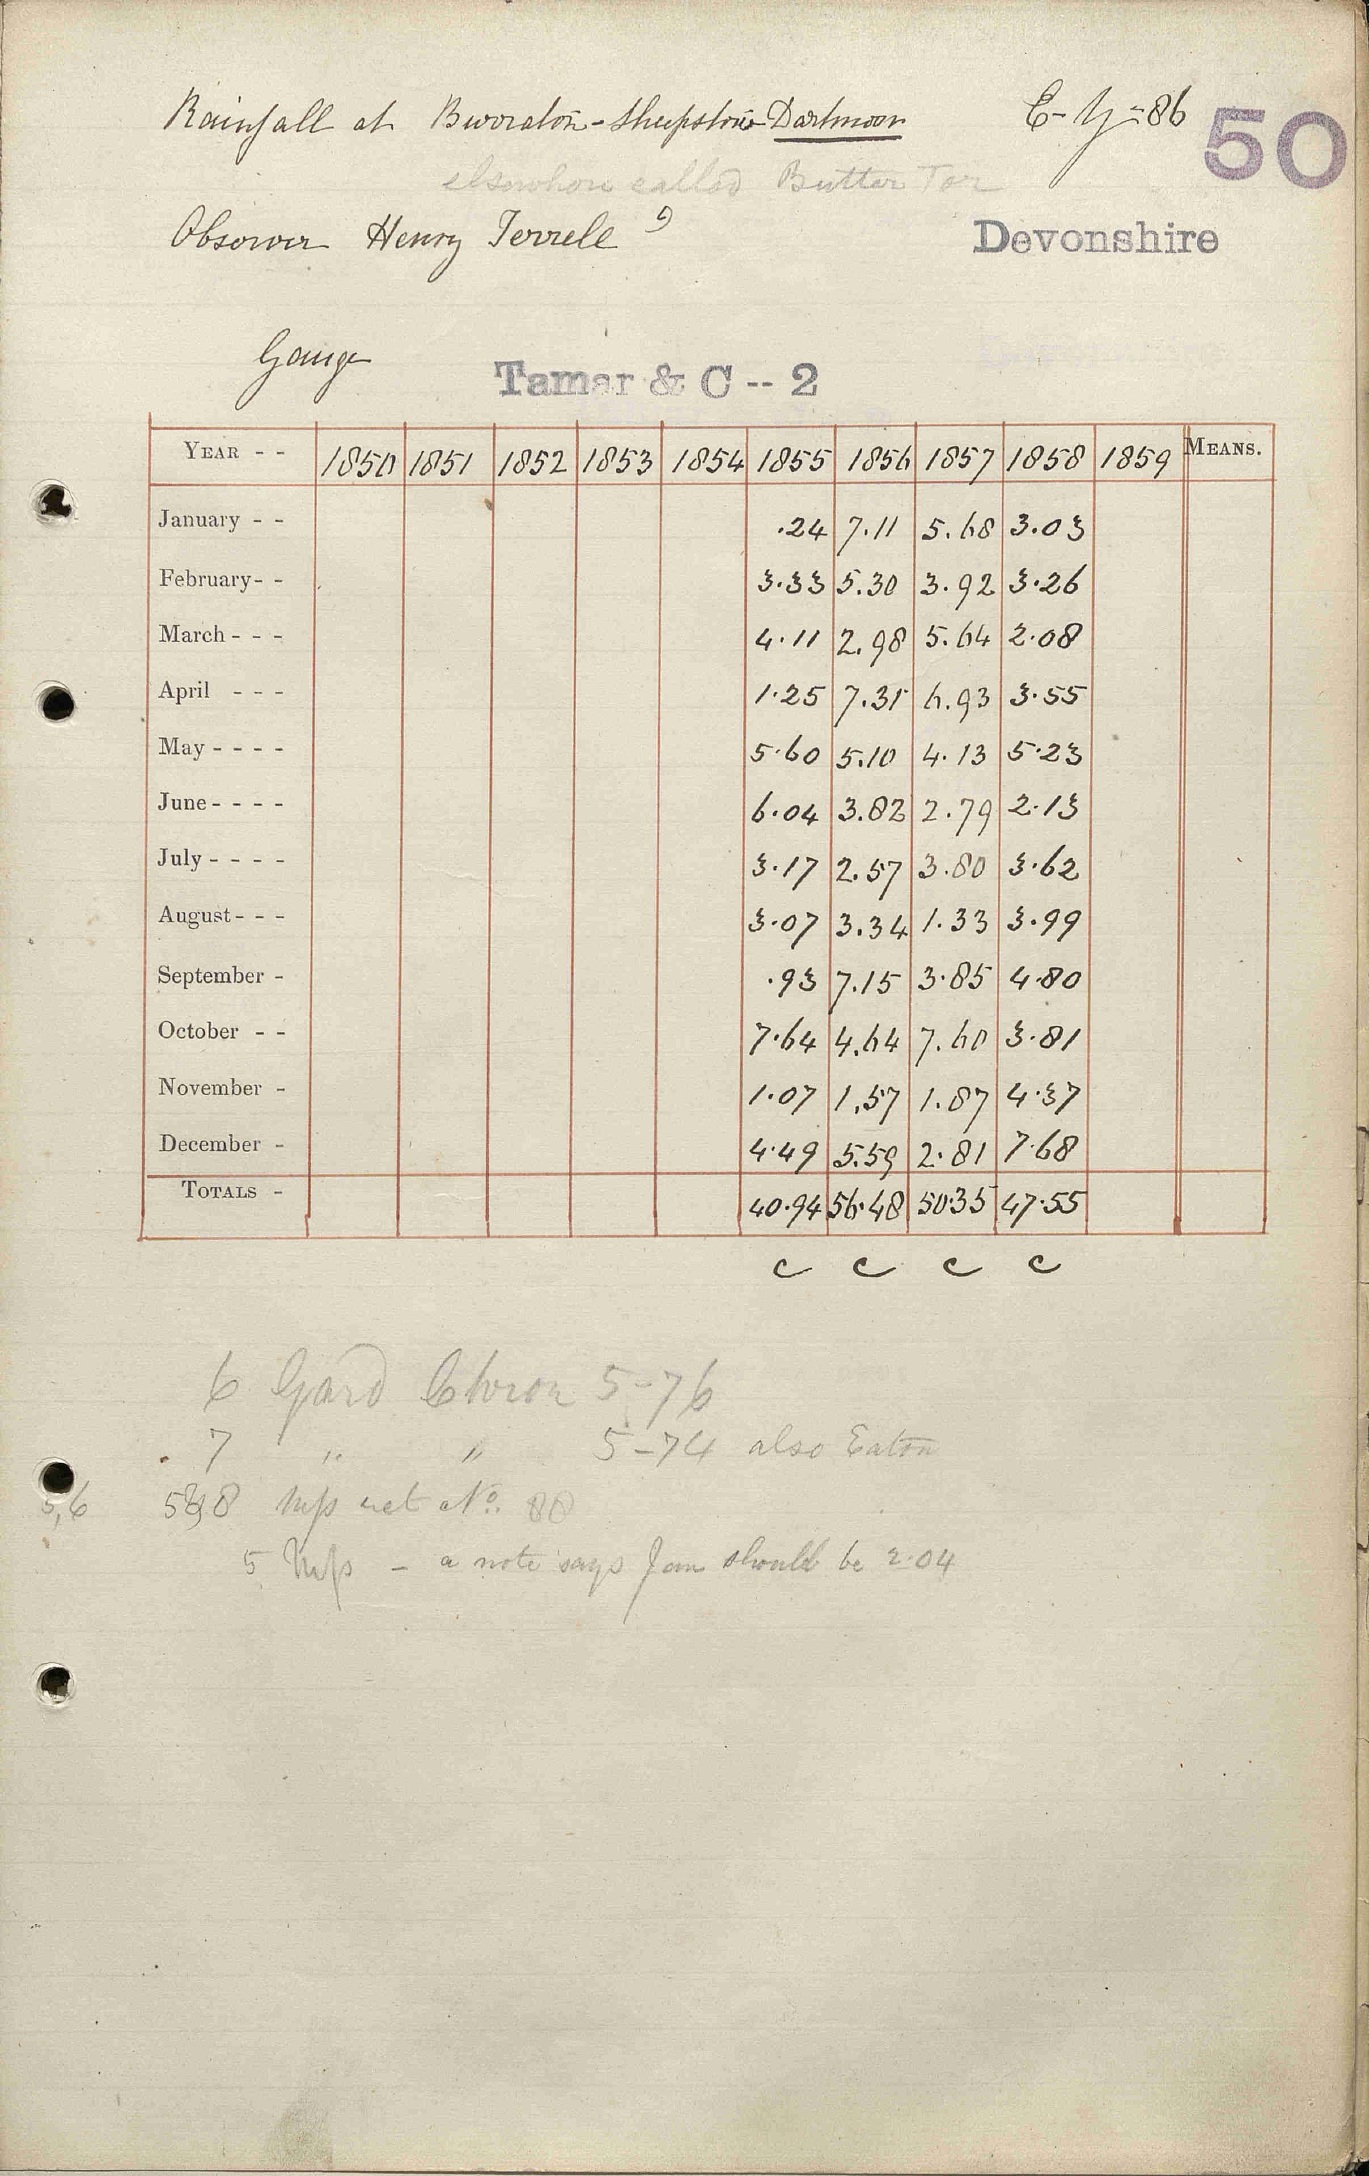 Rainfall at Burraton - Sheepstor Dartmoor E-y-86 50
elsewhere called Butter Tor
Observer Henry Terrell Devonshire
Gauge Tamar & C -- 2
YEAR - - 1850 1851 1852 1853 1854 1855 1856 1857 1858 1859 MEANS.
January - - .24 7.11 5.68 3.03
February - - 3.33 5.30 3.92 3.26
March - - - 4.11 2.98 5.64 2.08
April - - - 1.25 7.31 6.93 3.55
May - - - - 5.60 5.10 4.13 5.23
June - - - - 6.04 3.82 2.79 2.13
July - - - - 3.17 2.57 3.80 3.62
August - - - 3.07 3.34 1.33 3.99
September - .93 7.15 3.85 4.80
October - - 7.64 4.64 7.60 3.81
November - 1.07 1.57 1.87 4.37
December - 4.49 5.59 2.81 7.68
TOTALS - 40.94 56.48 50.35 47.55
c c c c
6 Gard Chron 5-76
7 " " 5-74 also Eaton
5,6 58 Mss ret No. 88
5 Mss - a note says Jan should be 2.04